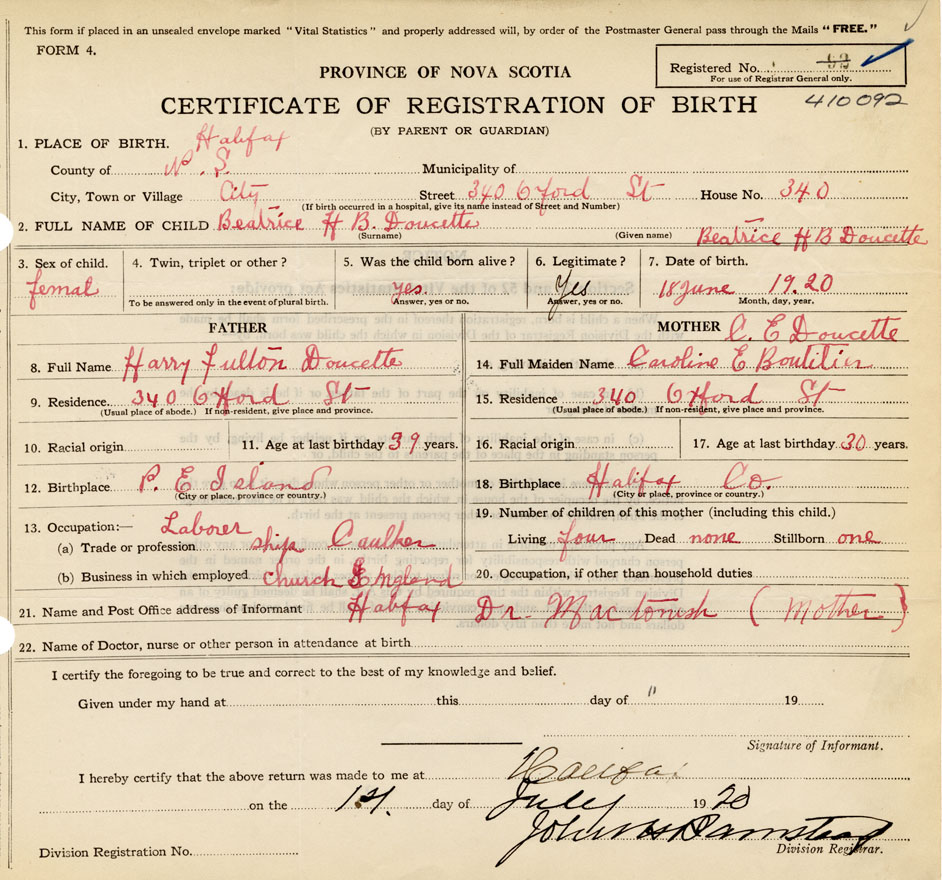 This form if placed in an unsealed envelope marked "Vital Statistics" and properly addressed will, by order of the Postmaster General pass through the Mails "FREE."
FORM 4.
Registered No. 92
For use of Registrar General only.
PROVINCE OF NOVA SCOTIA
CERTIFICATE OF REGISTRATION OF BIRTH 410092
(BY PARENT OR GUARDIAN)
1. PLACE OF BIRTH. Halifax
County of N. S. Municipality of
City, Town or Village City Street 340 Oxford St House No. 340
(If birth occurred in a hospital, give its name instead of Street and Number)
2. FULL NAME OF CHILD Beatrice H B. Doucette Beatrice H B Doucette
(Surname) (Given name)
3. Sex of child. 4. Twin, triplet or other? 5. Was the child born alive? 6. Legitimate? 7. Date of birth.
femal yes. Yes 18 June 19.20
To be answered only in the event of plural birth. Answer, yes or no. Answer, yes or no. Month, day, year.
FATHER MOTHER C. E Doucette
8. Full Name Harry Fulton Doucette 14. Full Maiden Name Caroline E Boutilier
9. Residence. 340 Oxford St 15. Residence 340 Oxford St
(Usual place of abode.) If non-resident, give place and province. (Usual place of abode.) If non-resident, give place and province.
10. Racial origin 11. Age at last birthday 39 years. 16. Racial origin 17. Age at last birthday 30 years.
12. Birthplace P. E Island 18. Birthplace Halifax Co.
(City or place, province or country.) (City or place, province or country.)
13. Occupation:— Laborer 19. Number of children of this mother (including this child.)
(a) Trade or profession ships Caulker Living four Dead none Stillborn one
(b) Business in which employed Church England 20. Occupation, if other than household duties
21. Name and Post Office address of Informant Halifax Dr. MacTonish (Mother)
22. Name of Doctor, nurse or other person in attendance at birth
I certify the foregoing to be true and correct to the best of my knowledge and belief.
Given under my hand at this day of " 19
Signature of Informant.
I hereby certify that the above return was made to me at Halifax
on the 14. day of July 1920
Division Registration No. Division Registrar.